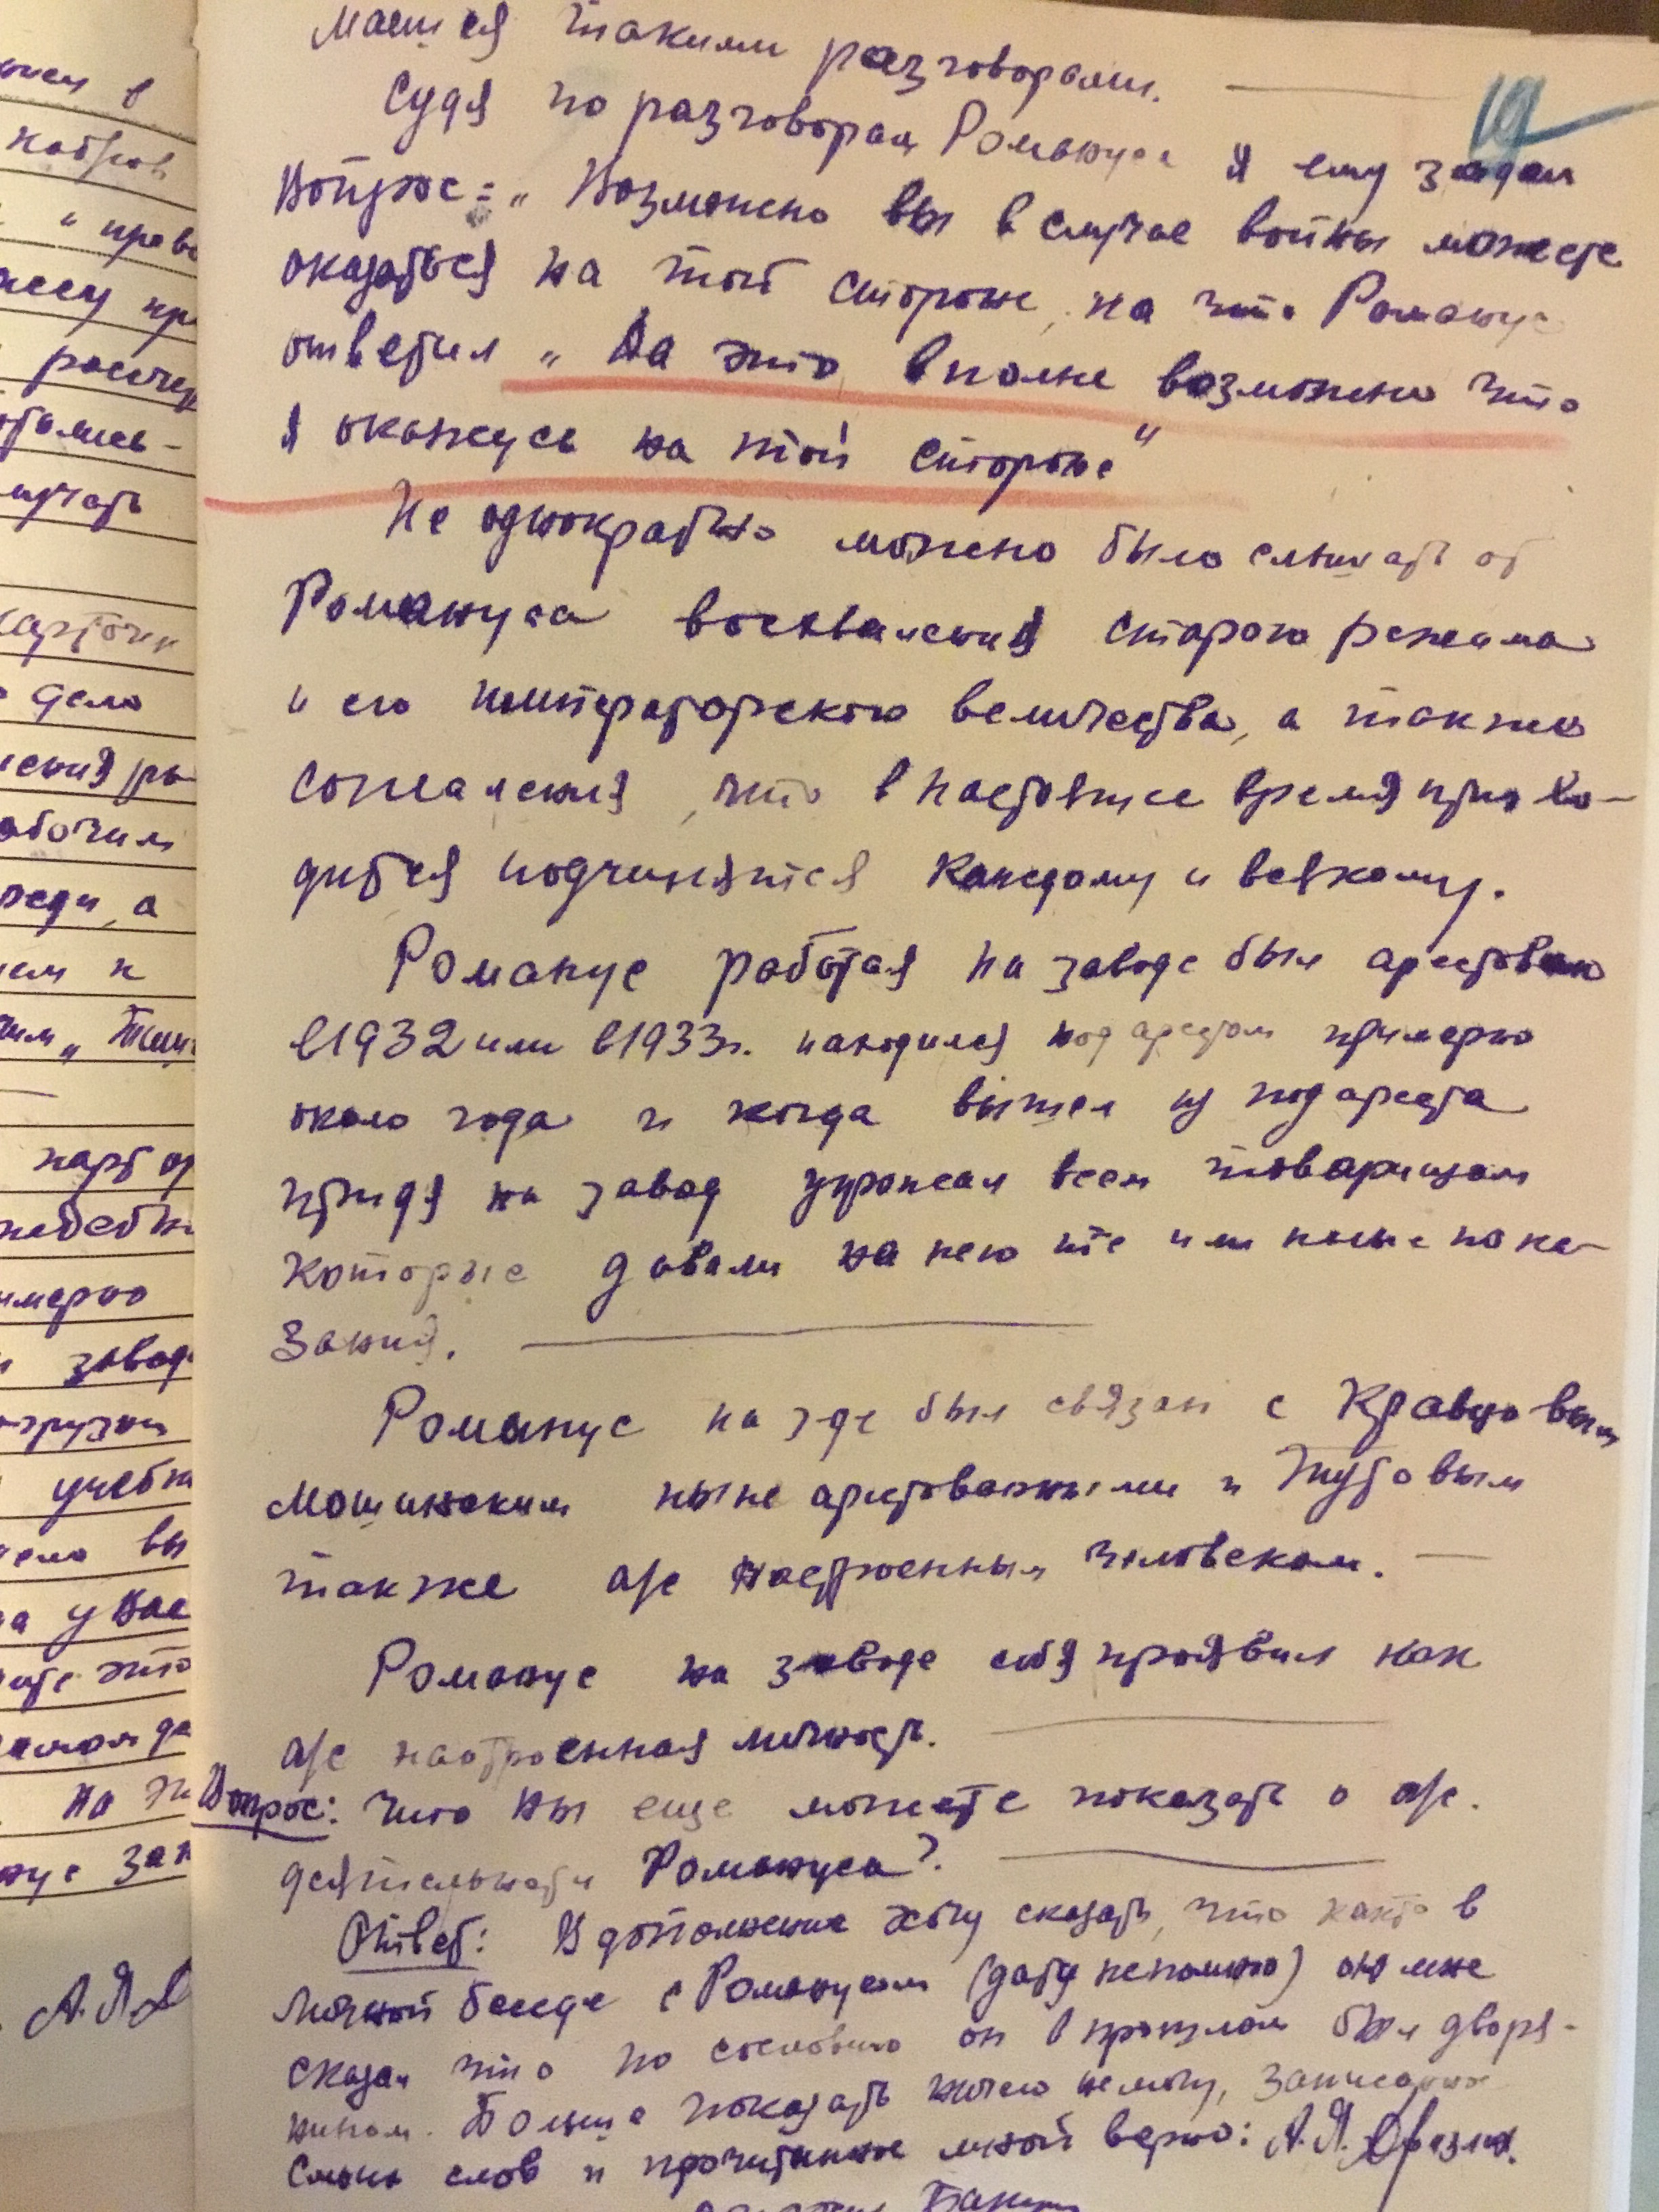 маться такими разговорами.
19
Судя по разговорам Романуса я ему задал
вопрос: „Возможно вы в случае войны можете
оказаться на той стороне, на что Романус
ответил „Да это вполне возможно что
я окажусь на той стороне“
Не однократно можно было слышать от
Романуса восхваления старого режима
и его императорского величества, а также
сожаления, что в настоящее время прихо-
дится подчинятся каждому и всякому.
Романус работая на заводе был арестован
в 1932 или в 1933 г. находился под арестом примерно
около года и когда вышел из под ареста
придя на завод угрожал всем товарищам
которые давали на него те или иные пока-
зания.
Романус на з-де был связан с Кравцовым
Мошинским ныне арестованными и Шутовым
также а/с настроенным человеком.
Романус на заводе себя проявил как
а/с настроенная личность.
Вопрос: Что вы еще можете показать о а/с.
деятельности Романуса?
Ответ: В дополнение хочу сказать, что както в
личной беседе с Романусом (дату непомню) он мне
сказал что по сословию он в прошлом был дворя-
нином. Больше показать ничего не могу, записано
с моих слов и прочитанное мной верно: А.Я.
ем в
„ прав
карточк
дело
рабочим
реди, а
ем к
парт ор
имерно
завод
учебн
вы
а у вас
это
на
зан
А.Я.